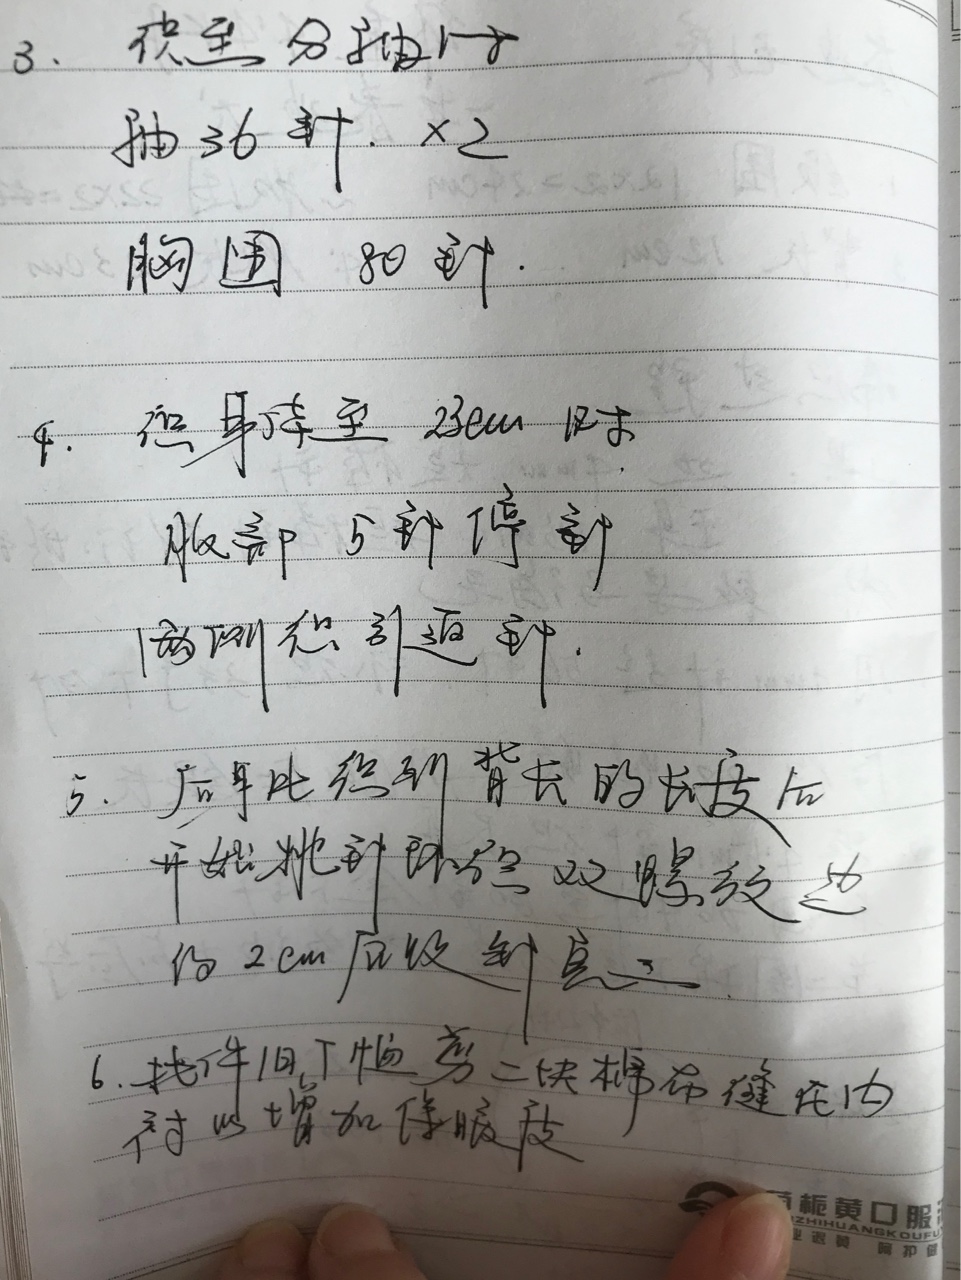 3. 织至分抽时
抽36针. ×2
胸围 80针.
4. 织身体至 23cm 时.
腹部 5针 停针
两侧织引返针.
5. 后身比织到背长的长度后
开始挑针环织双螺纹边
约2cm后收针
6. 找件旧T恤剪一块棉布缝在内
衬以增加保暖度
栀黄口服
ZHIHUANGKOUFU